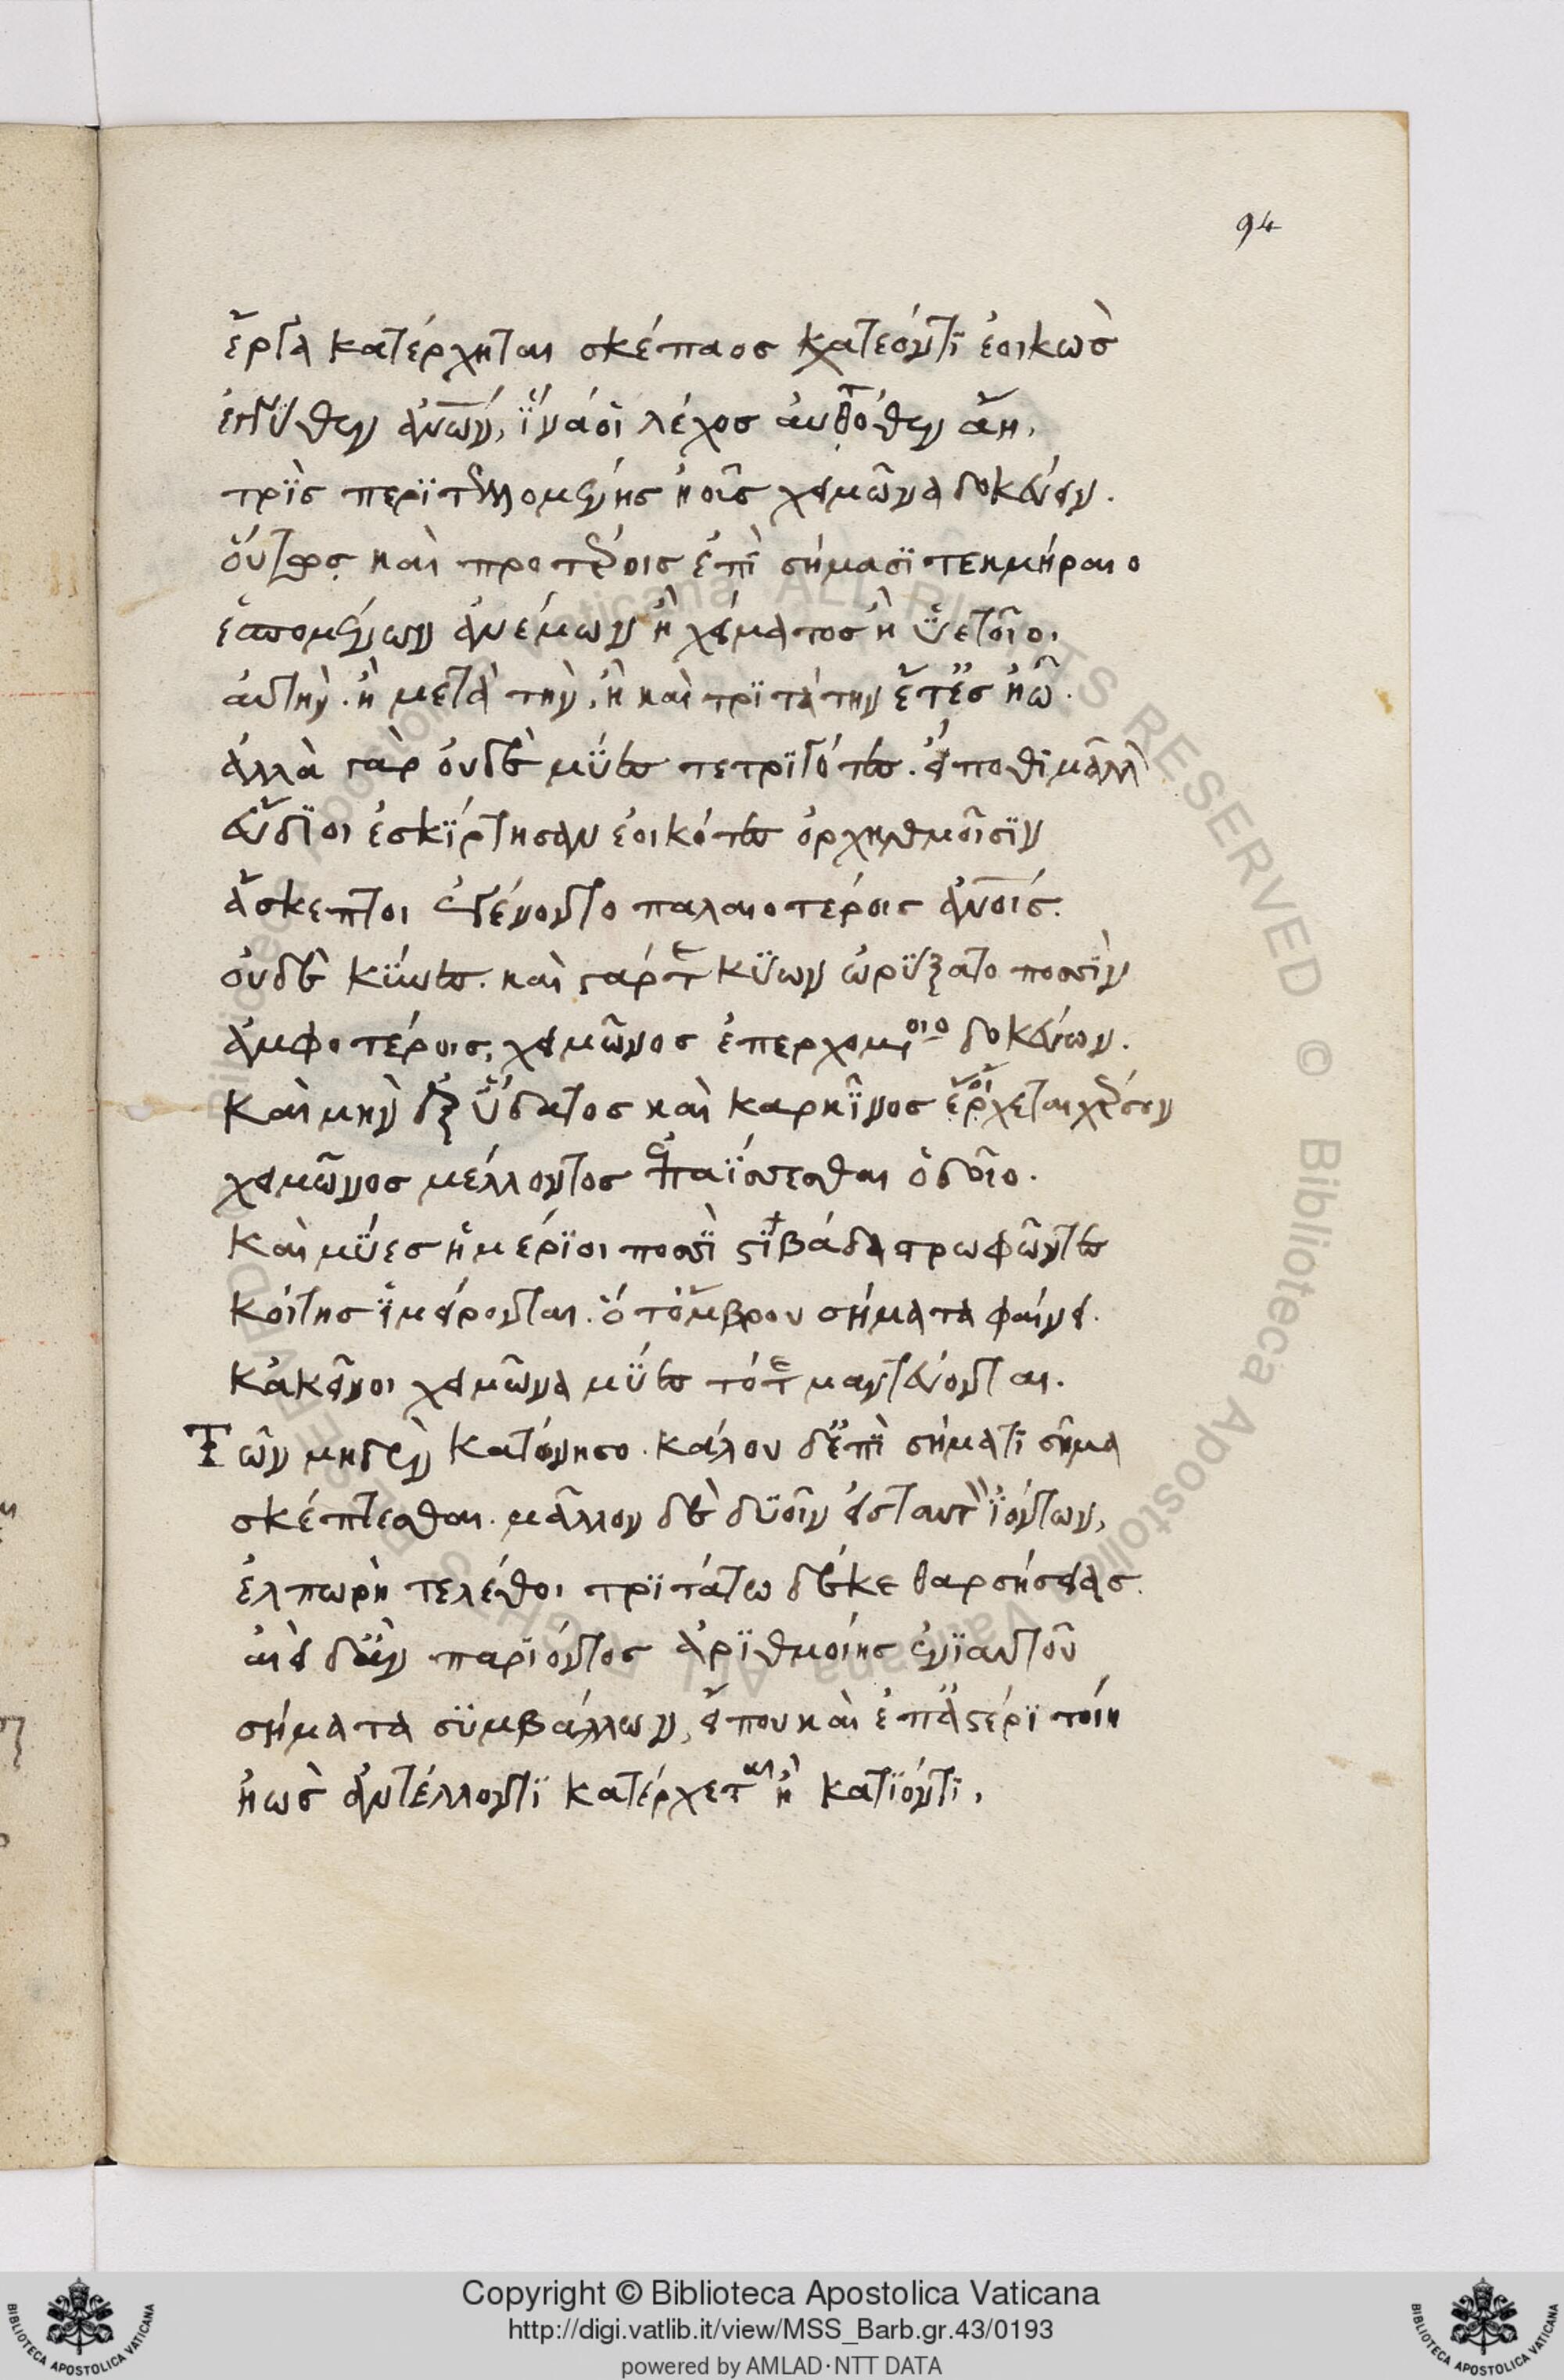 94
ἔργα κατέρχηται σκέπαος χατέοντι ἐοικὼς
ἐγγύθεν ἀνων, ἵνά οἱ λέχος αὐτόθεν ἄη,
τρὶς περιτελλομένης ἠοῦς χειμῶνα δοκεύειν.
οὕτως καὶ προτέροις ἐπὶ σήμασι τεκμήραιο
ἐσσομένων ἀνέμων ἢ χείματος ἢ ὑετοῖο.
αὐτὴν. ἢ μετὰ τὴν, ἢ καὶ τριτάτην ἔτ' ἐς ἠῶ.
ἀλλὰ γὰρ οὐδὲ μύες τετριγότες. εἴ ποθι μᾶλλ
εὔδιοι ἐσκίρτησαν ἐοικότες ὀρχηθμοῖσιν
ἄσκεπτοι ἐγένοντο παλαιοτέροις ἀνοις.
οὐδὲ κύνες. καὶ γάρ τε κύων ὠρύξατο ποσσὶν
ἀμφοτέροις, χειμῶνος ἐπερχομένοιο δοκεύων.
Καὶ μὴν δ' ἐξ ὕδατος καὶ καρκῖνος ἔρχεται χέρσον
χειμῶνος μέλλοντος ἐπαΐσσεσθαι ὁδοῖο.
Καὶ μύες ἡμέριοι ποσσὶ στιβάδα στρωφῶντες
κοίτης ἱμείρονται. ὅτ' ὄμβρου σήματα φαίνει.
κἀκεῖνοι χειμῶνα μύες τότε μαντεύονται.
Τῶν μηδὲν κατόνησο. κάλον δ' ἐπὶ σήματι σῆμα
σκέπτεσθαι. μᾶλλον δὲ δυοῖν εἰς ταυτ' ἰόντων,
ἐλπωρὴ τελέθοι τριτάτω δέ κε θαρσήσειας.
αἰεὶ δ' ἂν παριόντος ἀριθμοίης ἐνιαυτοῦ
σήματα συμβάλλων, εἴ που καὶ ἐπ' ἀστέρι τοίη
ἠὼς ἀντέλλοντι κατέρχεται ἢ κατιόντι,
Copyright © Biblioteca Apostolica Vaticana
http://digi.vatlib.it/view/MSS_Barb.gr.43/0193
powered by AMLAD·NTT DATA